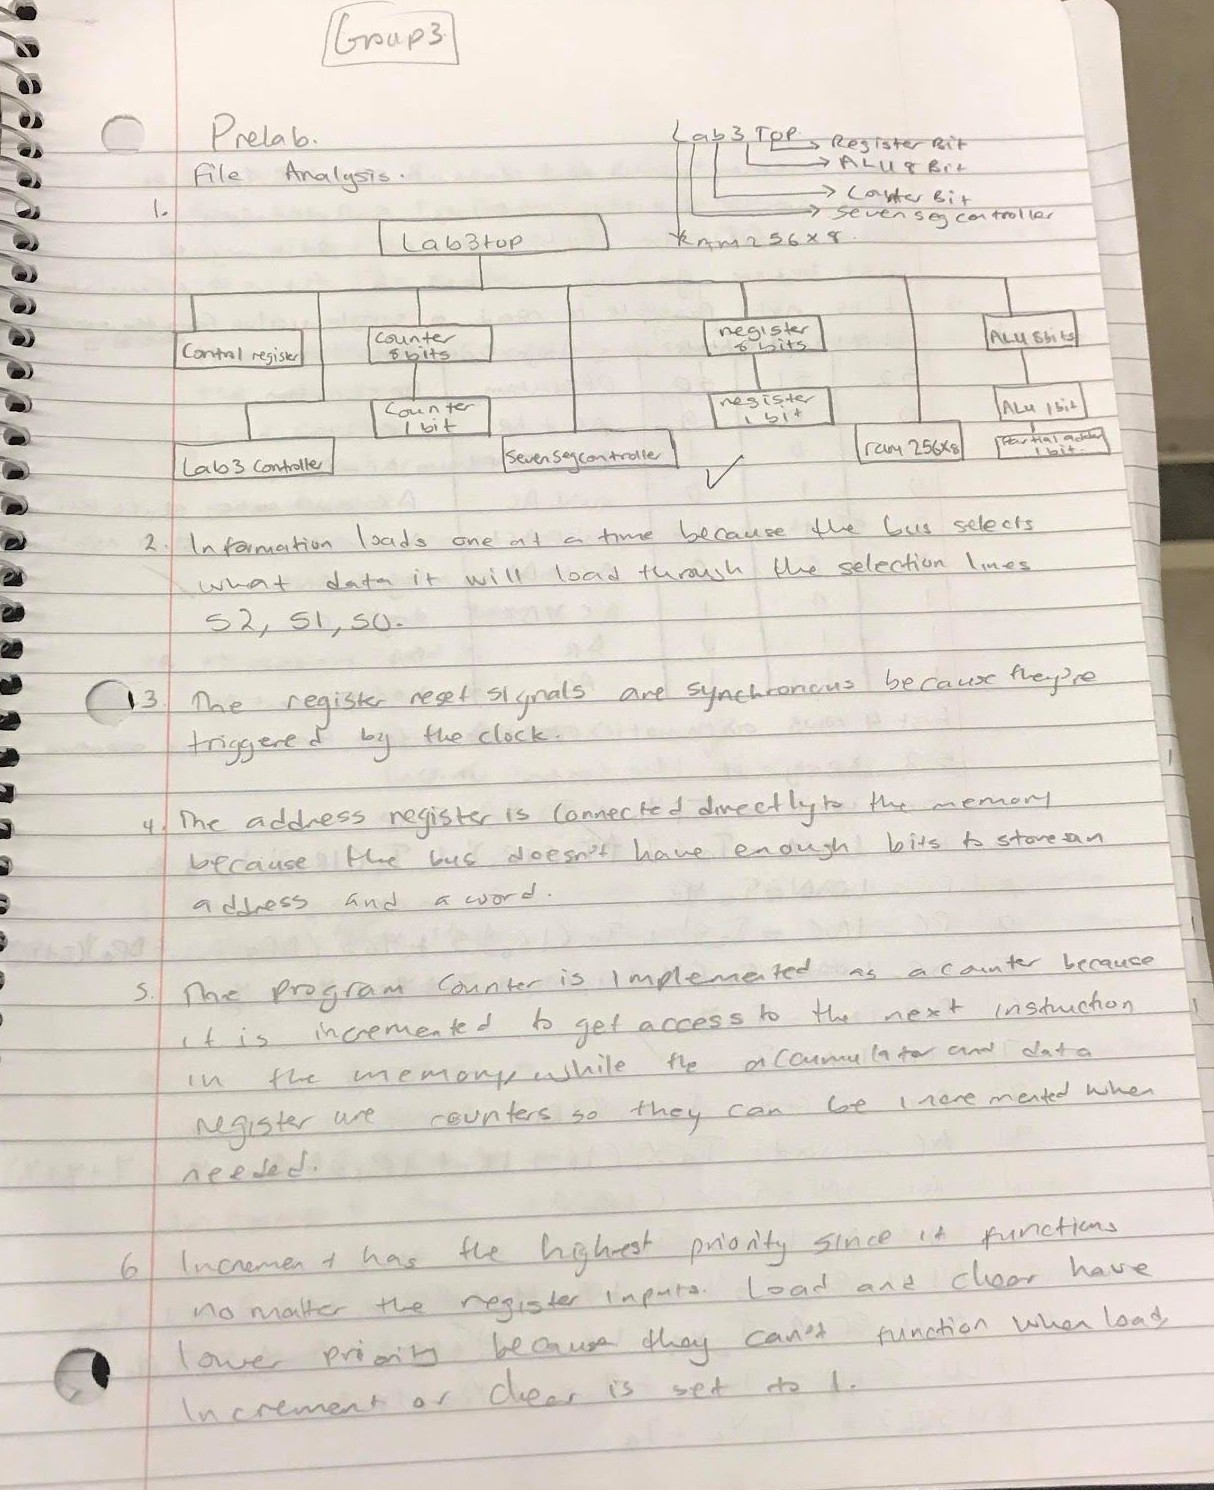 Group 3
Prelab.
File Analysis.
Lab3 Top
Register Bit
ALU 8 Bit
Counter Bit
Seven seg controller
RAM 256x8.
1.
Lab3top
Control register
Counter 8 bits
register 8 bits
ALU 8bits
Counter 1 bit
register 1 bit
ALU 1bit
Lab3 Controller
Sevensegcontroller
ram 256x8
Partial adder 1 bit.
2. Information loads one at a time because the bus selects
what data it will load through the selection lines
S2, S1, S0.
3. The register reset signals are synchronous because they're
triggered by the clock.
4. The address register is connected directly to the memory
because the bus doesn't have enough bits to store an
address and a word.
5. The program counter is implemented as a counter because
it is incremented to get access to the next instruction
in the memory, while the accumulator and data
register are counters so they can be incremented when
needed.
6 Increment has the highest priority since it functions
no matter the register inputs. Load and clear have
lower priority because they can't function when load,
Increment or clear is set to 1.